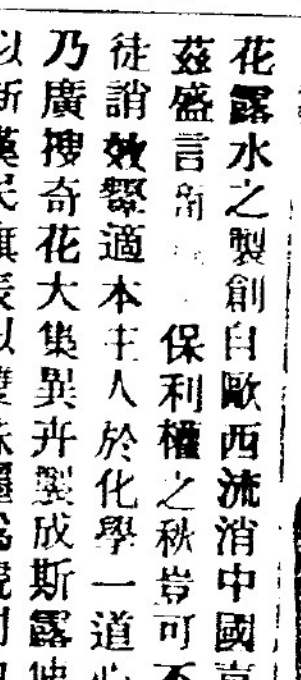 花露水之製創自歐西流消中國
茲盛言 保利權之秋豈可不
徒誚效顰適本主人於化學一道心
乃廣搜奇花大集異卉製成斯露
以新漢民旗